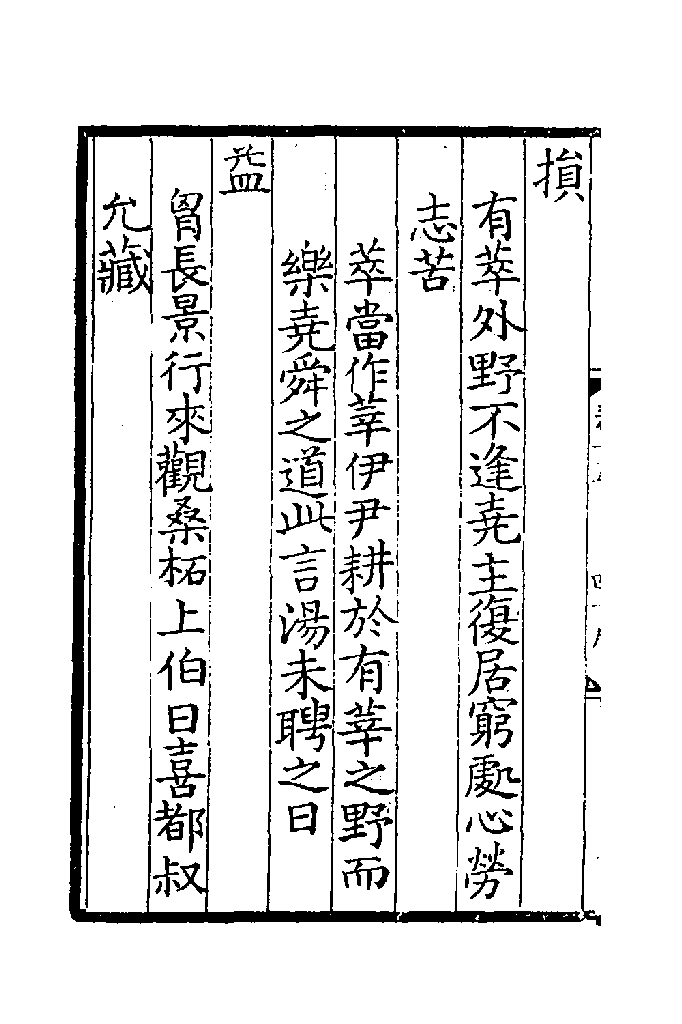 損
有萃外野不逢堯主復居窮處心勞
志苦
萃當作莘伊尹耕於有莘之野而
樂堯舜之道此言湯未聘之日
益
胷長景行來觀桑柘上伯日喜都叔
允藏